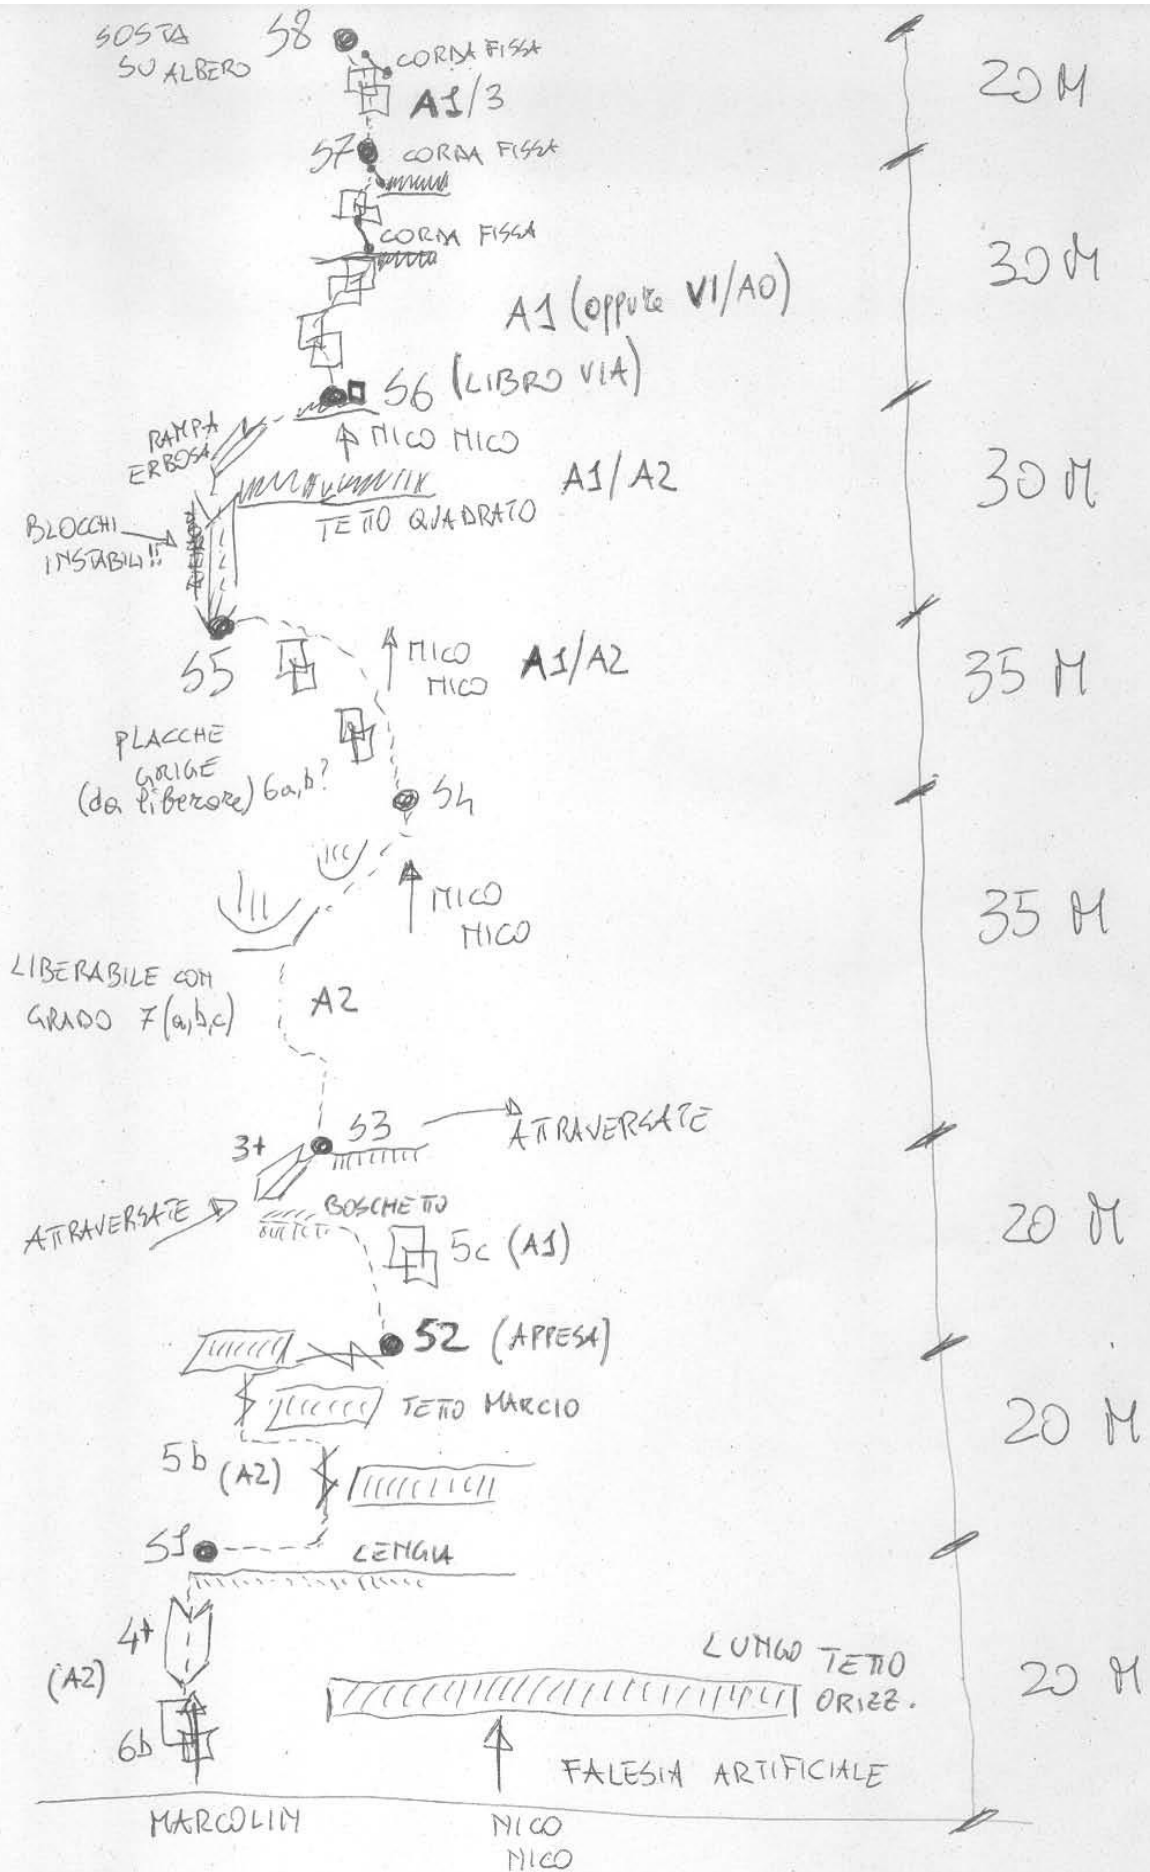 SOSTA
SU ALBERO
S8
CORDA FISSA
20 M
A1/3
S7
CORDA FISSA
CORDA FISSA
30 M
A1 (oppure VI/A0)
S6 (LIBRO VIA)
RAMPA
ERBOSA
NICO NICO
A1/A2
30 M
TETTO QUADRATO
BLOCCHI
INSTABILI!!
S5
NICO
NICO
A1/A2
35 M
PLACCHE
GRIGE
(da liberare) 6a,b?
S4
NICO
NICO
35 M
LIBERABILE CON
GRADO 7(a,b,c)
A2
3+
S3
ATTRAVERSATE
ATTRAVERSATE
BOSCHETTO
5c (A1)
20 M
S2 (APPESA)
TETTO MARCIO
20 M
5b (A2)
S1
LENGIA
4+
(A2)
LUNGO TETTO
ORIZZ.
20 M
6b
FALESIA ARTIFICIALE
MARCOLIN
NICO
NICO